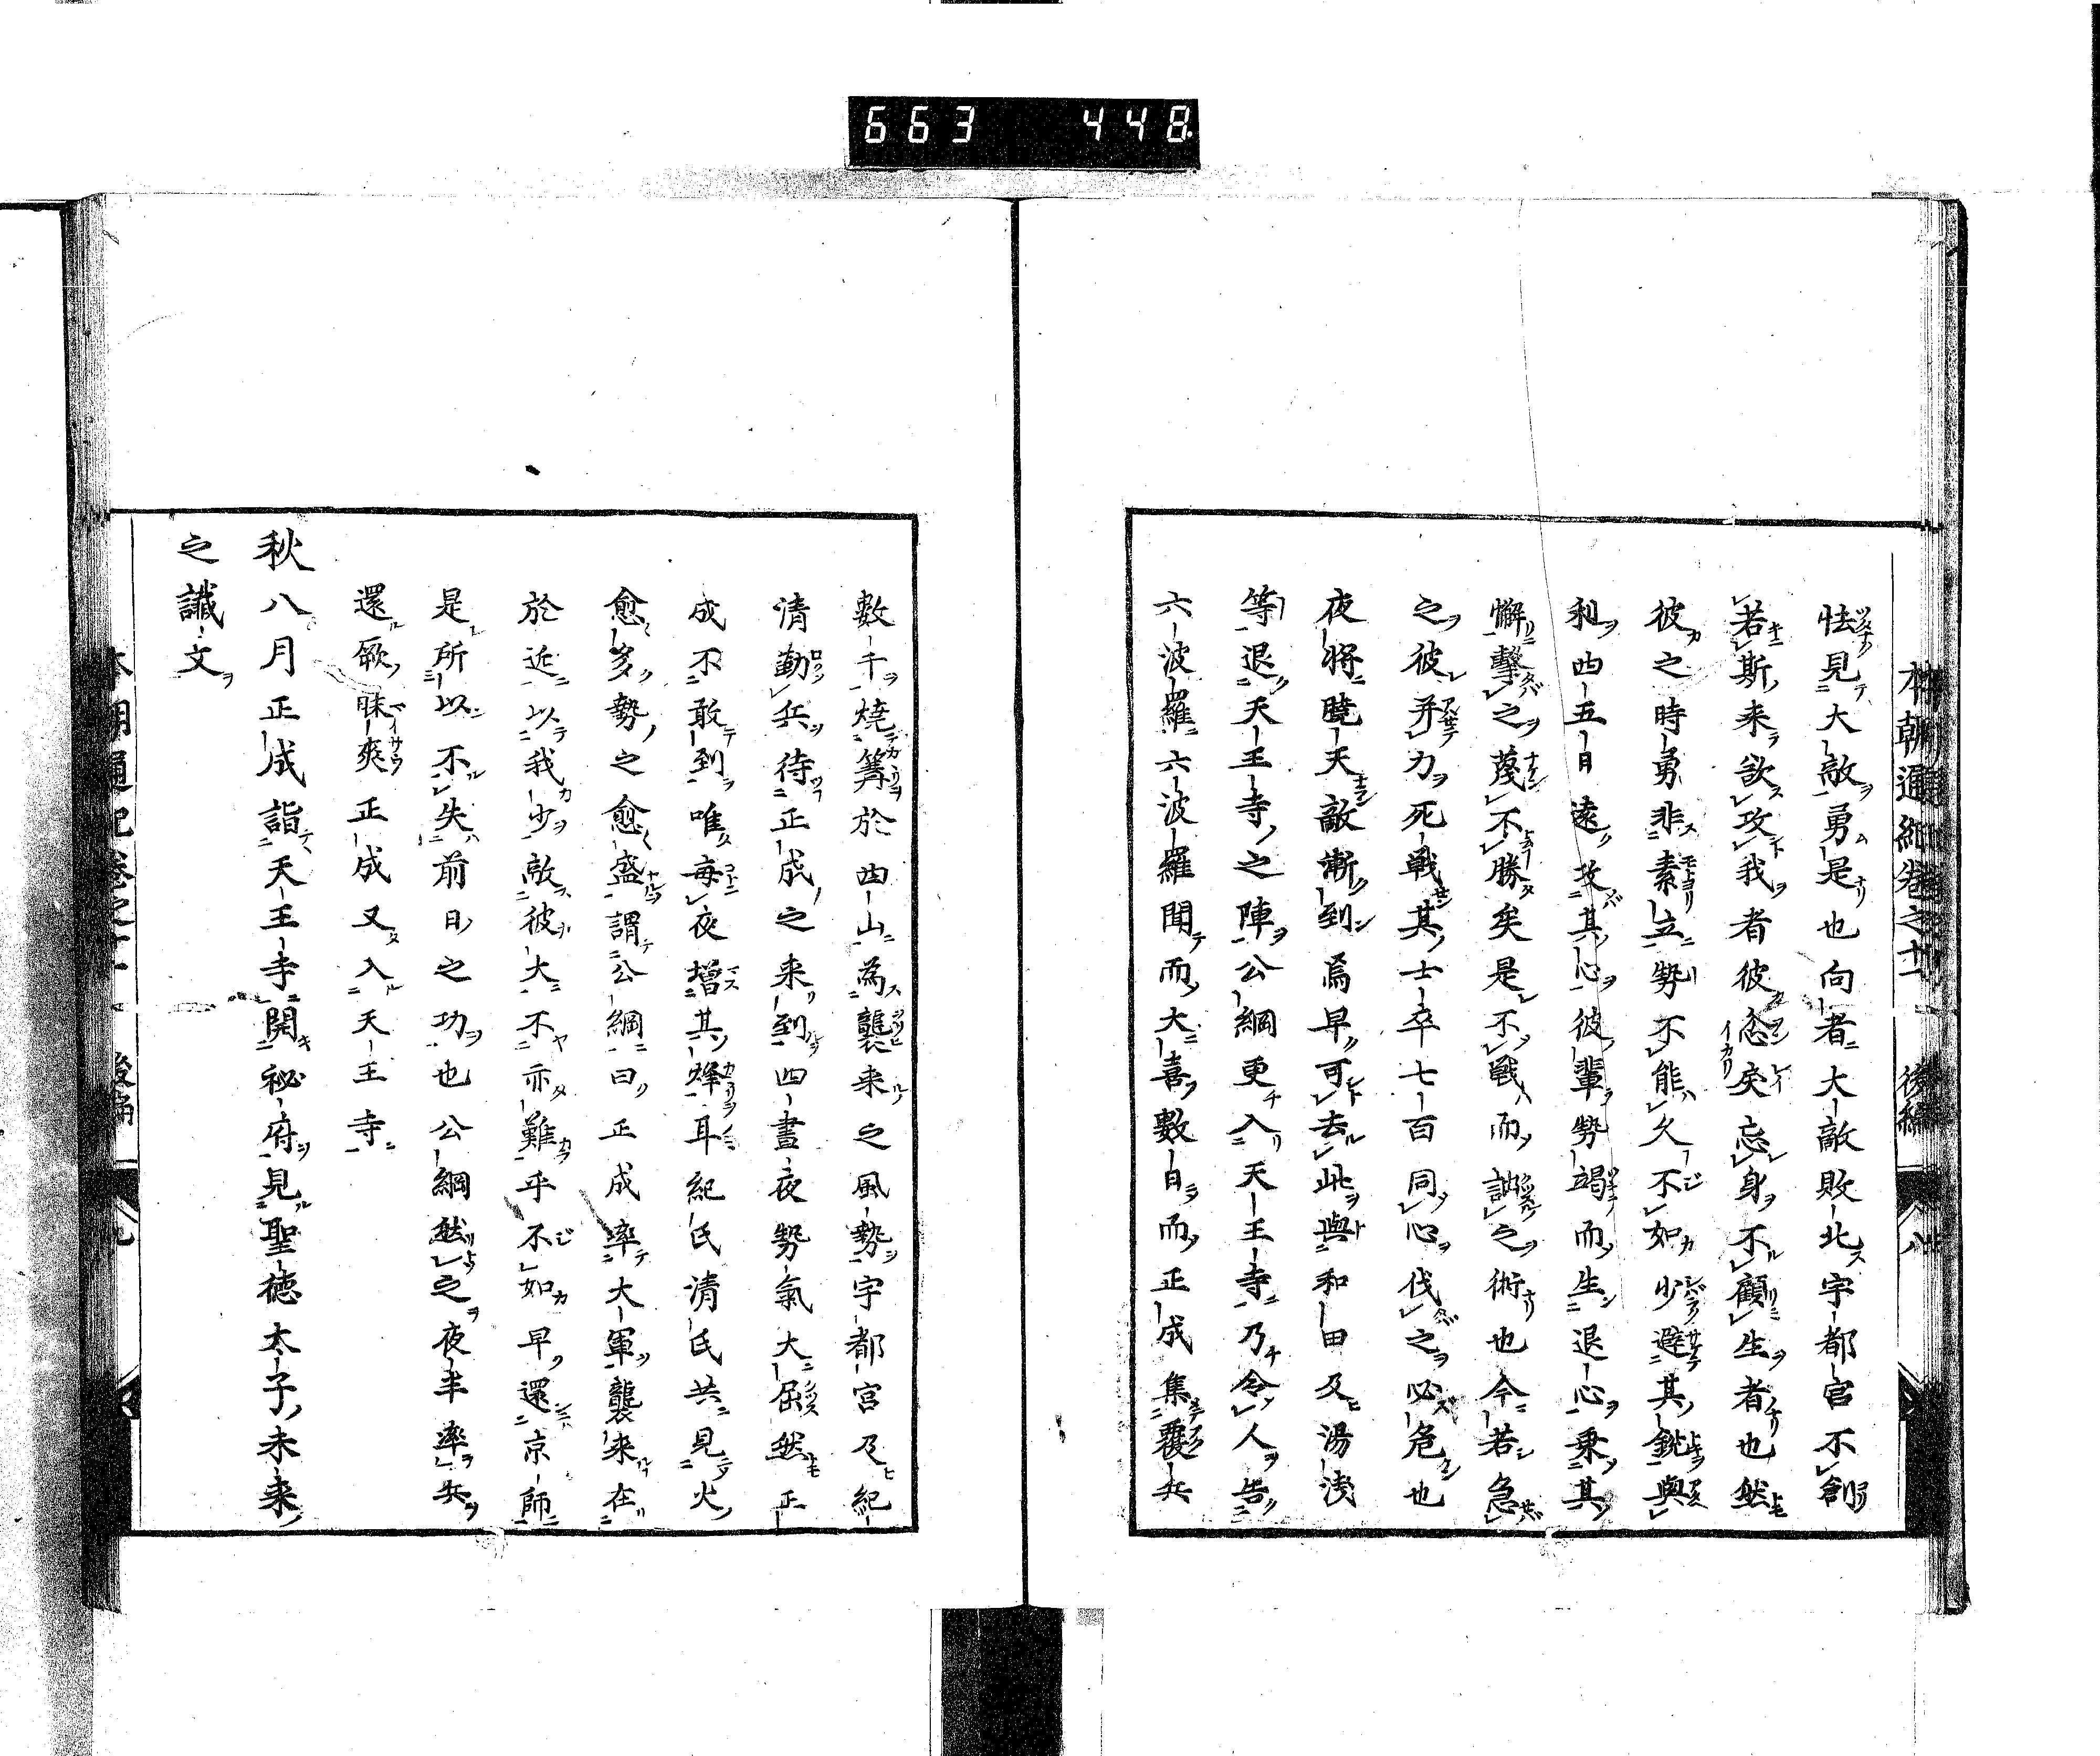 663 448
本朝通紀巻之十一 後編 八
怯見大敵勇是也向者大敵敗北宇都宮不創
若斯来欲攻我者彼忿戻忘身不顧生者也然
彼之時勇非素立勢不能久不如少避其鋭與
利四五日遠故其心彼輩勢竭而生退心乗其
懈撃之蔑不勝矣是不戦而詘之術也今若急
之彼并力死戦其士卒七百同心伐之必危也
夜将暁天敵漸到焉早可去此與和田及湯浅
等退天王寺之陣公綱更入天王寺乃令人告
六波羅六波羅聞而大喜數日而正成集覆兵
數千焼篝於四山為襲来之風勢宇都宮及紀
清勒兵待正成之来到四晝夜勢氣大屈然正
成不敢到唯毎夜増其烽耳紀氏清氏共見火
愈多勢之愈盛謂公綱曰正成率大軍襲来在
於近以我少敵彼大不亦難乎不如早還京師
是所以不失前日之功也公綱然之夜半率兵
還厥昧爽正成又入天王寺
秋八月正成詣天王寺開秘府見聖徳太子未来
之讖文
本朝通紀巻之十一 後編 九